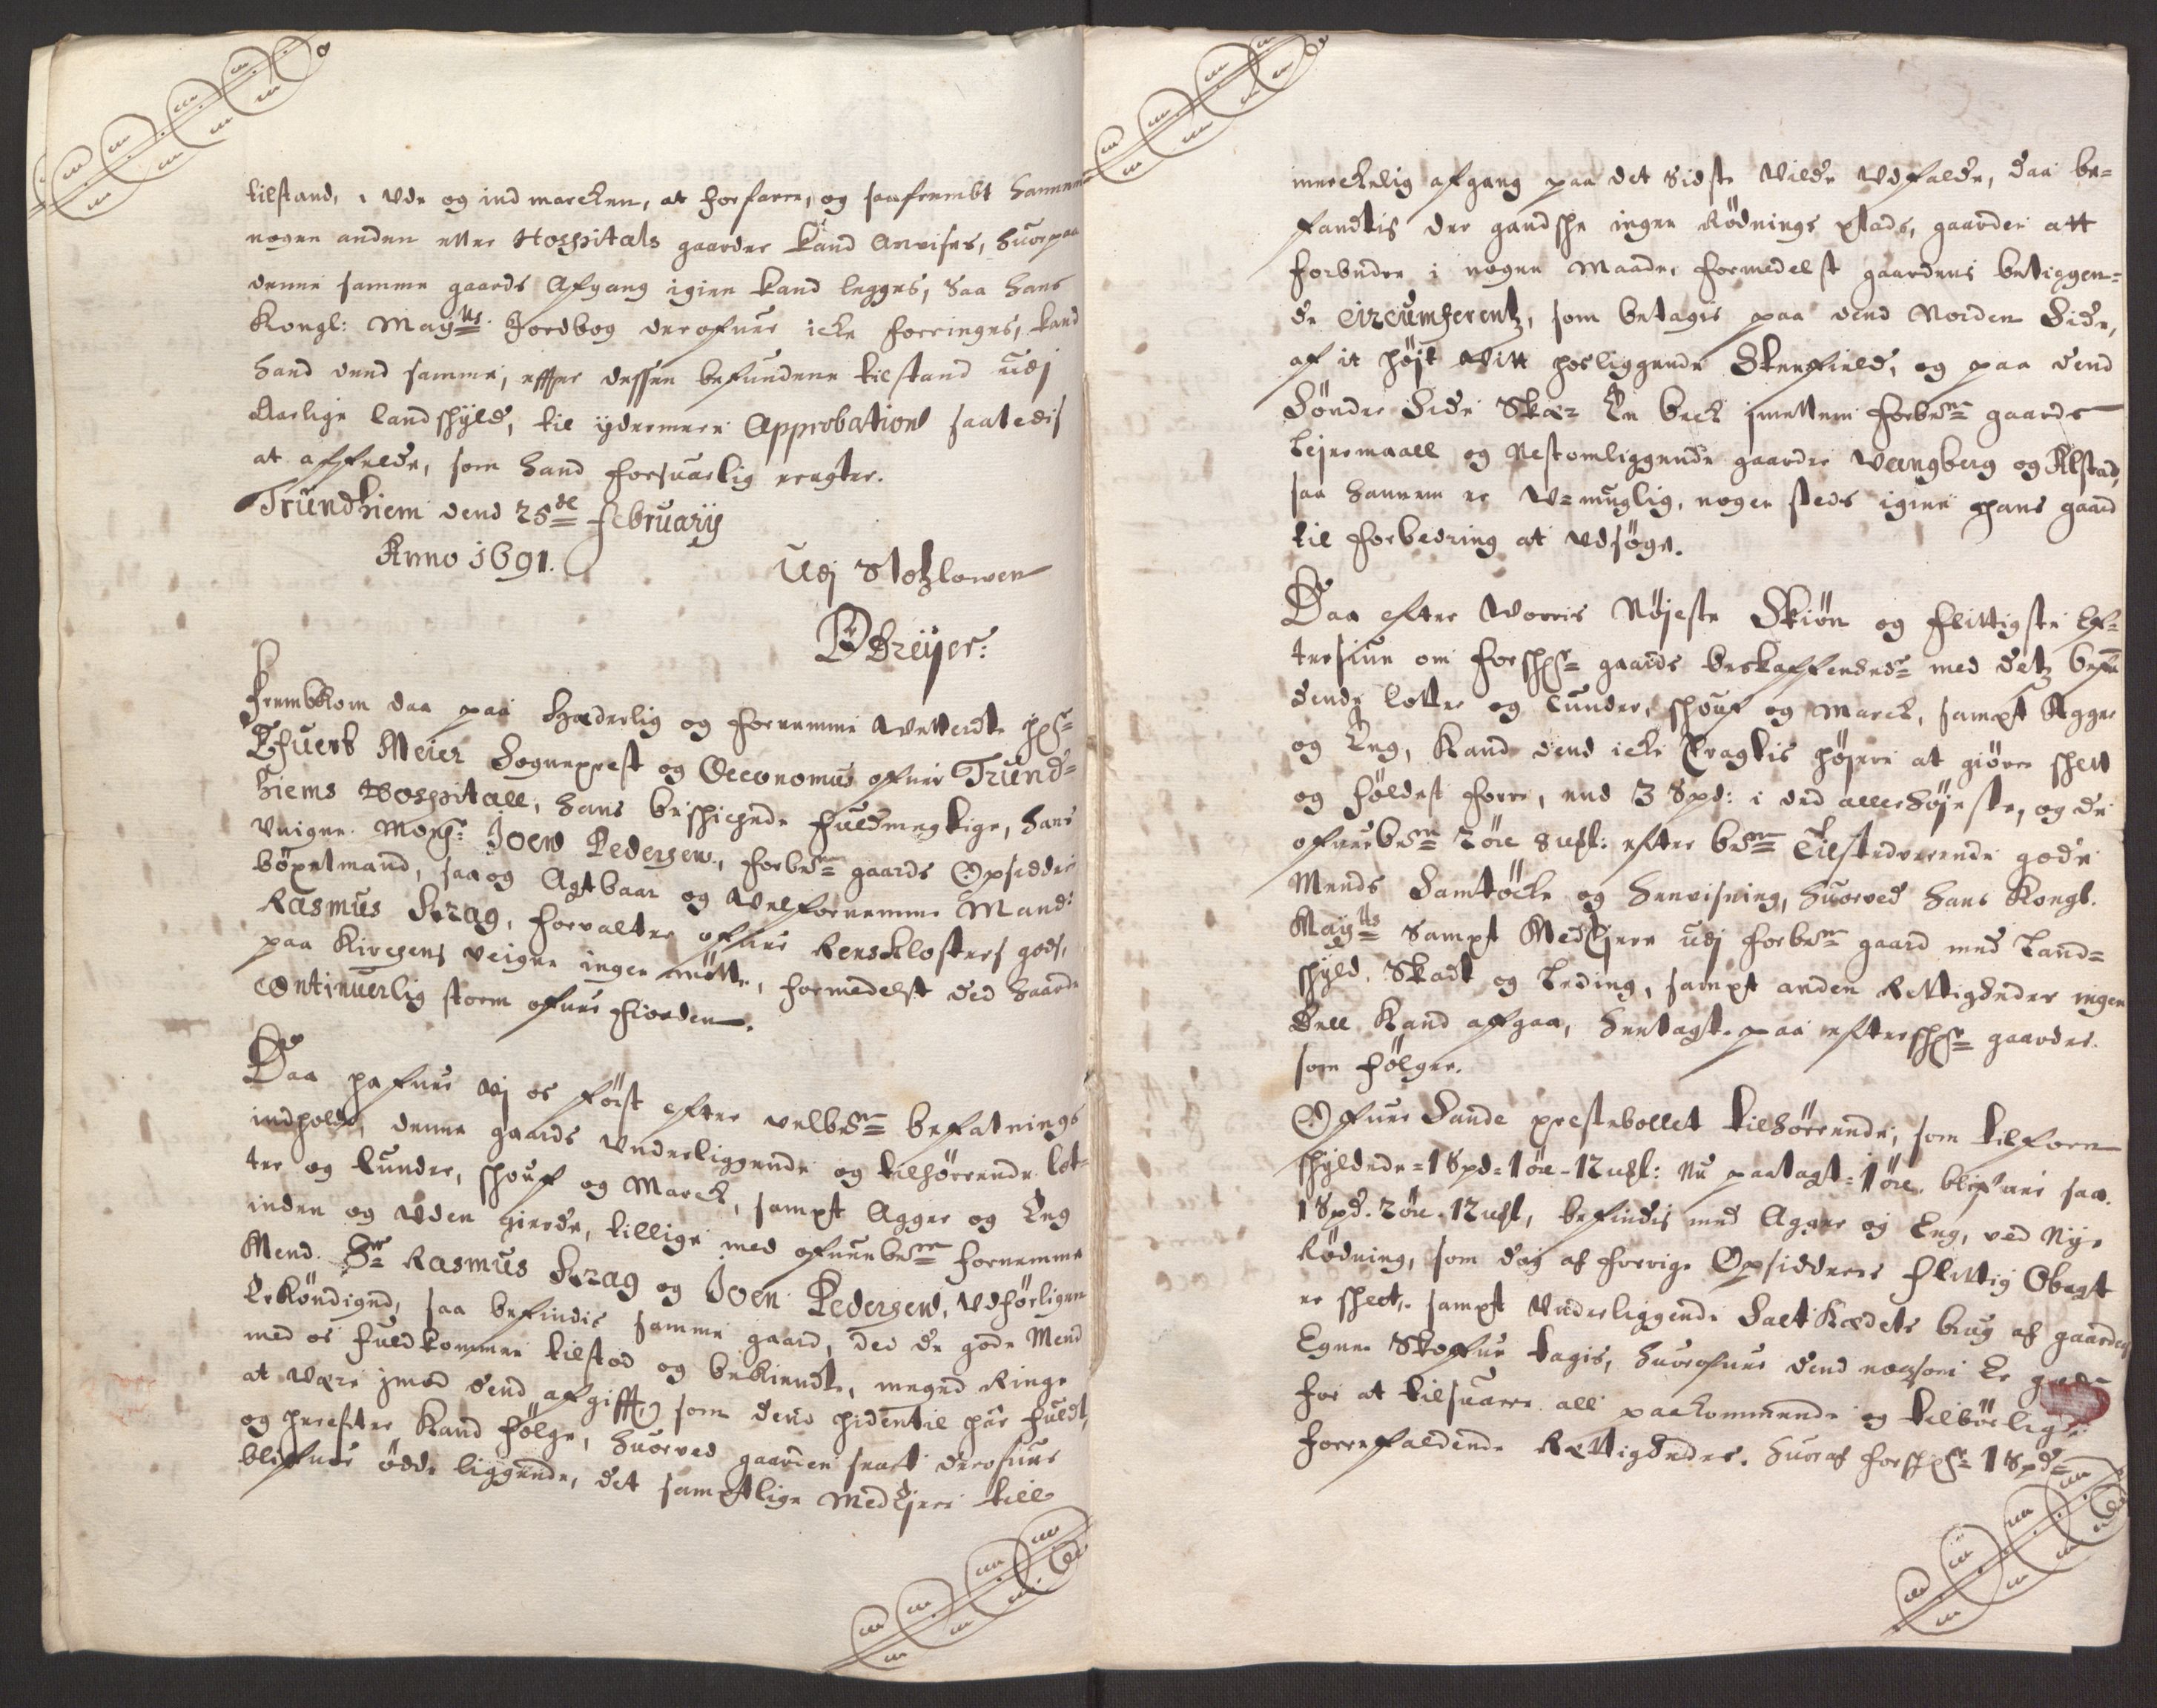 tilstand, i Ude og ind marcken, at forfare, og saafrembt hannem
nogen anden eller Hospitals gaarder kand Anvises, huorpaa
denne samme gaards Afgang igien kand legges, Saa hans
Kongl: Mayts. Jordbog derofuer icke forringes, kand
hand dend samme, effter dessen befundene tilstand udj
Aarlige landschyld, til ydermere Approbation saaledis
at affelde, som hand forsuarlig eragter.
Trundhiem dend 25de February
Anno 1691.
Udj Slotzlowen
DDreyer:
Frembkom daa paa Hæderlig og fornemme Welterdte Hr
Efuert Meier Sogneprest og Oeconomus ofuer Trund-
hiems Hospitall, hans beschichede fuldmegtige, hans
Veigne. Mons: Joen Pedersen, forbete gaards Opsidder
böxelmand, saa og Agtbaar og Welfornemme Mand:
Rasmus Krag, forvalter ofuer Rensklosters gods,
paa Kircgens veigne ingen mötte, formedelst ded haarde
Continuerlig storm ofuer Fiorden.
Daa hafuer Vj os först efter velbemte befatnings
indhold, denne gaards Underliggende og tilhörrende lot-
ter og lunder, schouf og Marck, sampt Agger og Eng
inden og Uden gierde, tillige med ofuenbemte fornemme
Mend. Sr Rasmus Krag og Joen Pedersen, Udförligen
Erköndiget, saa befindis samme gaard, ded de gode Mend
med os fuldkommen tilstod og bekiendte, meged Ringe
at Være jmod dend afgifft, som dend hidentil har fuldt,
og herefter Kand fölge, huorved gaarden snart derofuer
blifuer ödde liggende, det samptlige Medejere till
merckelig afgang paa det Sidste Vilde Udfalde, daa be-
fandtis der gandsche ingen Rödnings plads, gaarden att
forbedre i nogen Maade, formedelst gaardens beliggen-
de Circumferentz, som betagis paa dend Norden Side,
af it höjt Vitt hosliggende Steenfield, og paa dend
Sönder Side Skær En beck jmellem forbemte gaards
Eiermaall og Nestomliggende gaarder Wangberg og Alstad,
saa hannem er U-muglig, nogen steds igien hans gaard
til forbedring at Udsöge.
Daa efter Worris Nöjeste Skiön og flittigste Ef-
tersiun om forschrne gaards beskaffenhed med detz befin
dende lotter og lunder, schouf og Marck, sampt Agger
og Eng, Kand dend icke Eragtis höjere at giörre schell
og földest forre, end 3 Spd: i ded allerhöjeste, og de
ofuerbemte 2 öre 8 mkl: efter bemte Tilstedverrende gode
Mends Samtöcke og Henvisning, huorved hans Kongl.
Mayts Sampt Medejere udj forbemte gaard med Land-
schyld, Skadt og Leding, sampt anden Rettigheder ingen
deel Kand afgaa, henlagt paa efterschrne gaarder.
som fölger.
Ofuer Sande prestebollet tilhörrende, som tilforn
schylder 1 Spd: 1 öre - 12 mkl: Nu paalagt 1 öre. blifuer saa
1 Spd. 2 öre. 12 mkl, befindis med Agger og Eng, ved Nye
Rödning, som dag af forrige Opsidders flittig Obagt
er scheet, sampt Underliggende Salt Kædets brug af gaardens
Egene Skofue tagis, huorofuer dend noksom Er
for at tilsuare all paakommende og tilbörlige
forrefaldende Rettigheder. huoraf forschrne 1 Spd